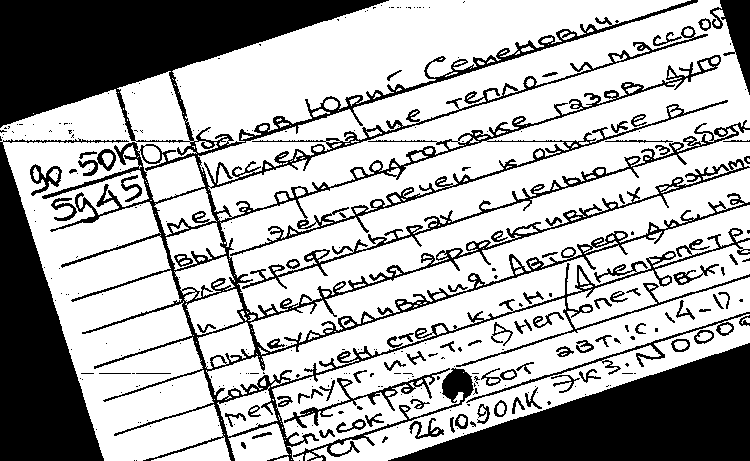 90-50К
5945
Огибалов, Юрий Семенович.
Исследование тепло- и массооб-
мена при подготовке газов дуго-
вых электропечей к очистке в
электрофильтрах с целью разработк
и внедрения эффективных режим
пылеулавливания: Автореф. дис. на
соиск. учен. степ. к.т.н. /Днепропетр.
металлург. ин-т. - Днепропетровск, 19
. - 17с.: граф
список работ авт.: с. 14-17.
ДСП. 26.10.90 ЛК. Экз. N000